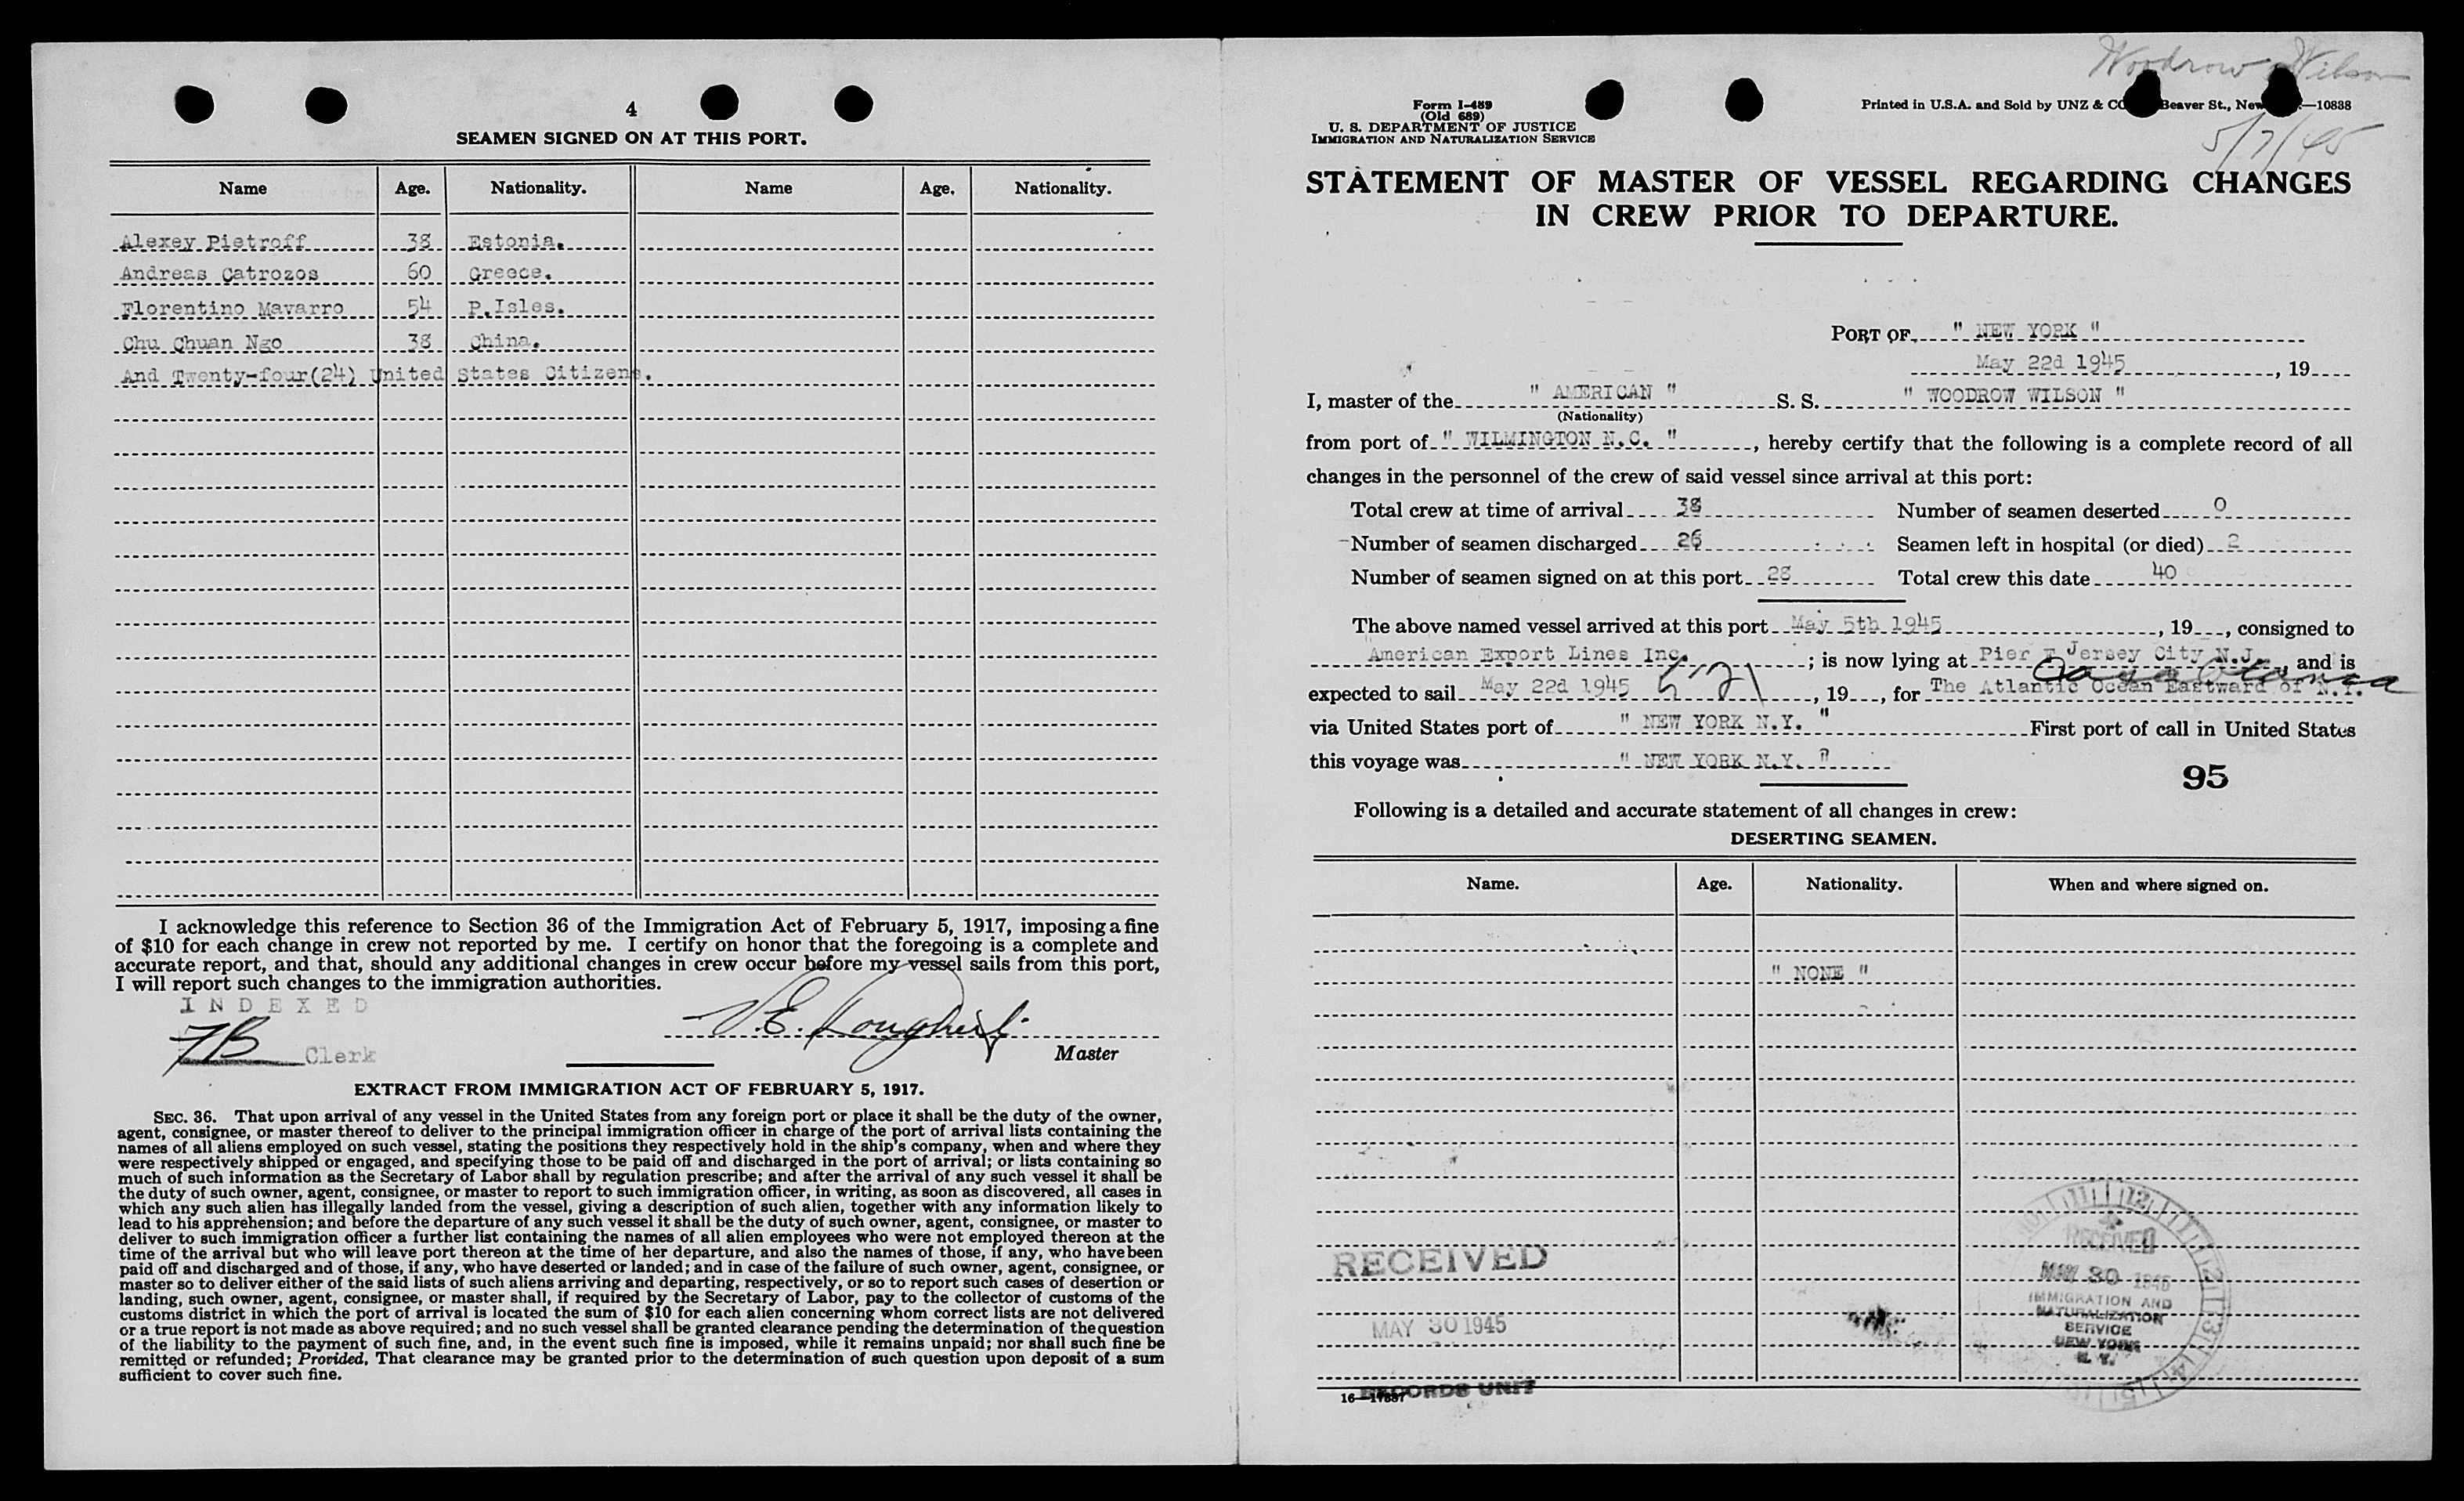 4
SEAMEN SIGNED ON AT THIS PORT.
Name Age. Nationality. Name Age. Nationality.
Alexey Pietroff 38 Estonia.
Andreas Catrozos 60 Greece.
Florentino Mavarro 54 P.Isles.
Chu Chuan Ngo 38 China.
And Twenty-four(24) United States Citizens.
I acknowledge this reference to Section 36 of the Immigration Act of February 5, 1917, imposing a fine
of $10 for each change in crew not reported by me. I certify on honor that the foregoing is a complete and
accurate report, and that, should any additional changes in crew occur before my vessel sails from this port,
I will report such changes to the immigration authorities.
INDEXED
FB Clerk
Master
EXTRACT FROM IMMIGRATION ACT OF FEBRUARY 5, 1917.
SEC. 36. That upon arrival of any vessel in the United States from any foreign port or place it shall be the duty of the owner,
agent, consignee, or master thereof to deliver to the principal immigration officer in charge of the port of arrival lists containing the
names of all aliens employed on such vessel, stating the positions they respectively hold in the ship's company, when and where they
were respectively shipped or engaged, and specifying those to be paid off and discharged in the port of arrival; or lists containing so
much of such information as the Secretary of Labor shall by regulation prescribe; and after the arrival of any such vessel it shall be
the duty of such owner, agent, consignee, or master to report to such immigration officer, in writing, as soon as discovered, all cases in
which any such alien has illegally landed from the vessel, giving a description of such alien, together with any information likely to
lead to his apprehension; and before the departure of any such vessel it shall be the duty of such owner, agent, consignee, or master to
deliver to such immigration officer a further list containing the names of all alien employees who were not employed thereon at the
time of the arrival but who will leave port thereon at the time of her departure, and also the names of those, if any, who have been
paid off and discharged and of those, if any, who have deserted or landed; and in case of the failure of such owner, agent, consignee, or
master so to deliver either of the said lists of such aliens arriving and departing, respectively, or so to report such cases of desertion or
landing, such owner, agent, consignee, or master shall, if required by the Secretary of Labor, pay to the collector of customs of the
customs district in which the port of arrival is located the sum of $10 for each alien concerning whom correct lists are not delivered
or a true report is not made as above required; and no such vessel shall be granted clearance pending the determination of the question
of the liability to the payment of such fine, and, in the event such fine is imposed, while it remains unpaid; nor shall such fine be
remitted or refunded; Provided, That clearance may be granted prior to the determination of such question upon deposit of a sum
sufficient to cover such fine.
Woodrow Wilson
5/7/45
Form I-489
(Old 689)
U. S. DEPARTMENT OF JUSTICE
IMMIGRATION AND NATURALIZATION SERVICE
Printed in U.S.A. and Sold by UNZ & CO Beaver St., New —10838
STATEMENT OF MASTER OF VESSEL REGARDING CHANGES
IN CREW PRIOR TO DEPARTURE.
PORT OF " NEW YORK "
May 22d 1945, 19
I, master of the " AMERICAN " S. S. " WOODROW WILSON "
(Nationality)
from port of " WILMINGTON N.C. ", hereby certify that the following is a complete record of all
changes in the personnel of the crew of said vessel since arrival at this port:
Total crew at time of arrival 38 Number of seamen deserted 0
Number of seamen discharged 26 Seamen left in hospital (or died) 2
Number of seamen signed on at this port 28 Total crew this date 40
The above named vessel arrived at this port May 5th 1945, 19, consigned to
American Export Lines Inc. ; is now lying at Pier F Jersey City N.J., and is
expected to sail May 22d 1945, 19, for The Atlantic Ocean Eastward of N.Y.
via United States port of " NEW YORK N.Y. " First port of call in United States
this voyage was " NEW YORK N.Y. "
95
Following is a detailed and accurate statement of all changes in crew:
DESERTING SEAMEN.
Name. Age. Nationality. When and where signed on.
" NONE "
RECEIVED
MAY 30 1945
RECORDS UNIT
RECEIVED
MAY 30 1945
IMMIGRATION AND
NATURALIZATION
SERVICE
NEW YORK
N. Y.